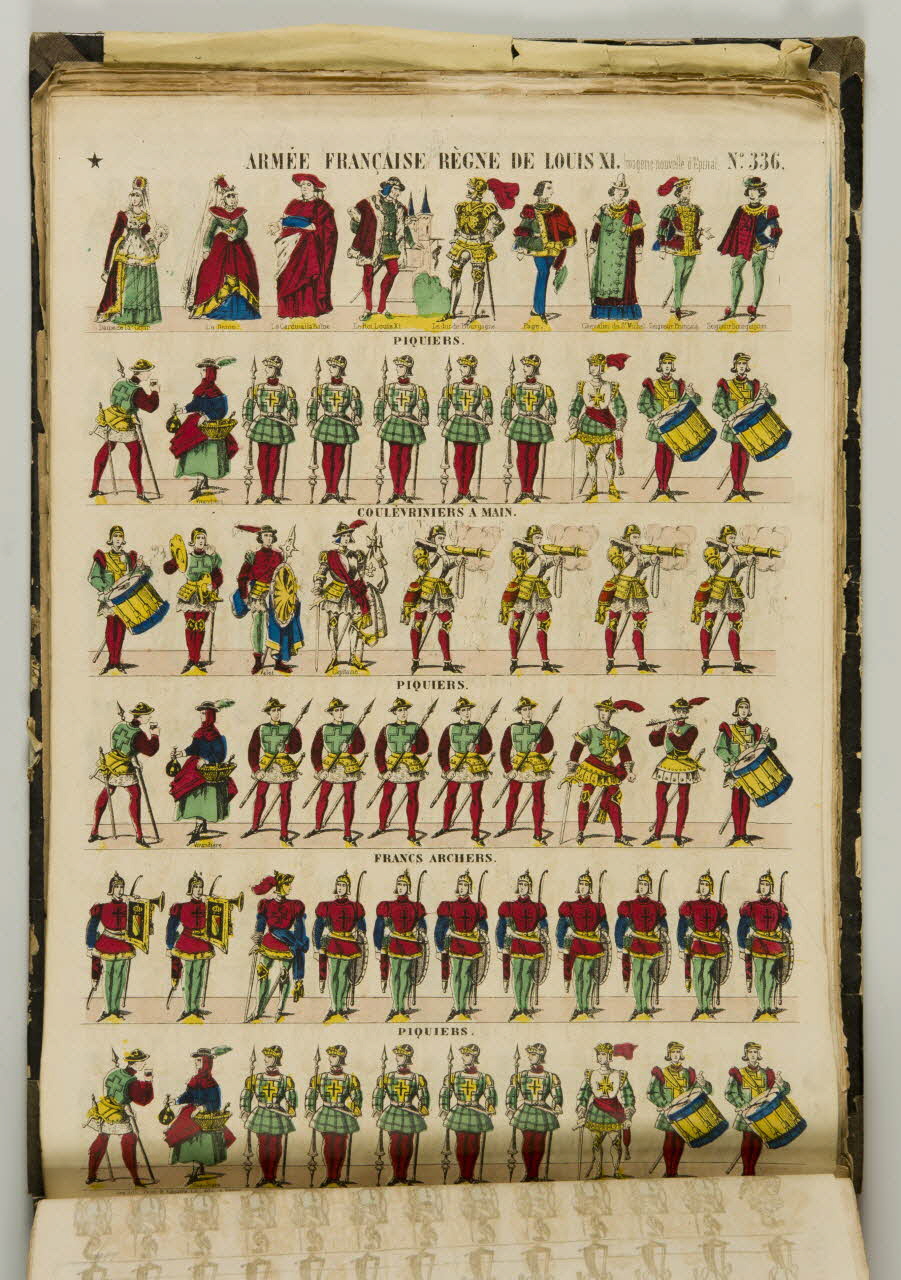 ARMÉE FRANÇAISE RÈGNE DE LOUIS XI. Imagerie nouvelle d'Épinal. Nº 336.
Dame de la Cour. La Reine. Le Cardinal la Balue. Le Roi Louis XI. Le duc de Bourgogne. Page. Chevalier de St Michel. Seigneur Français. Seigneur Bourguignon.
PIQUIERS.
COULÉVRINIERS A MAIN.
Valet Capitaine
PIQUIERS.
Vivandière
FRANCS ARCHERS.
PIQUIERS.